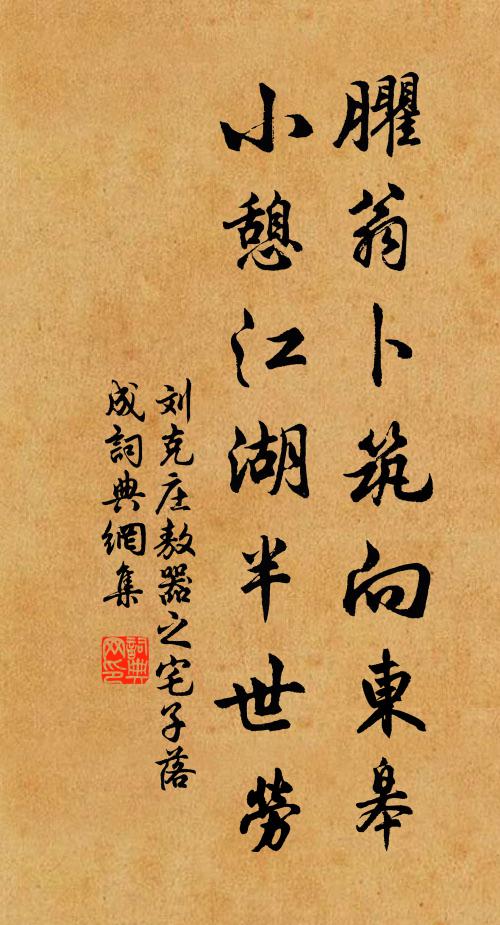 臞翁卜筑向東皋
小憩江湖半世勞
刘克庄敖器之宅子落
成詞典網集
詞典网印